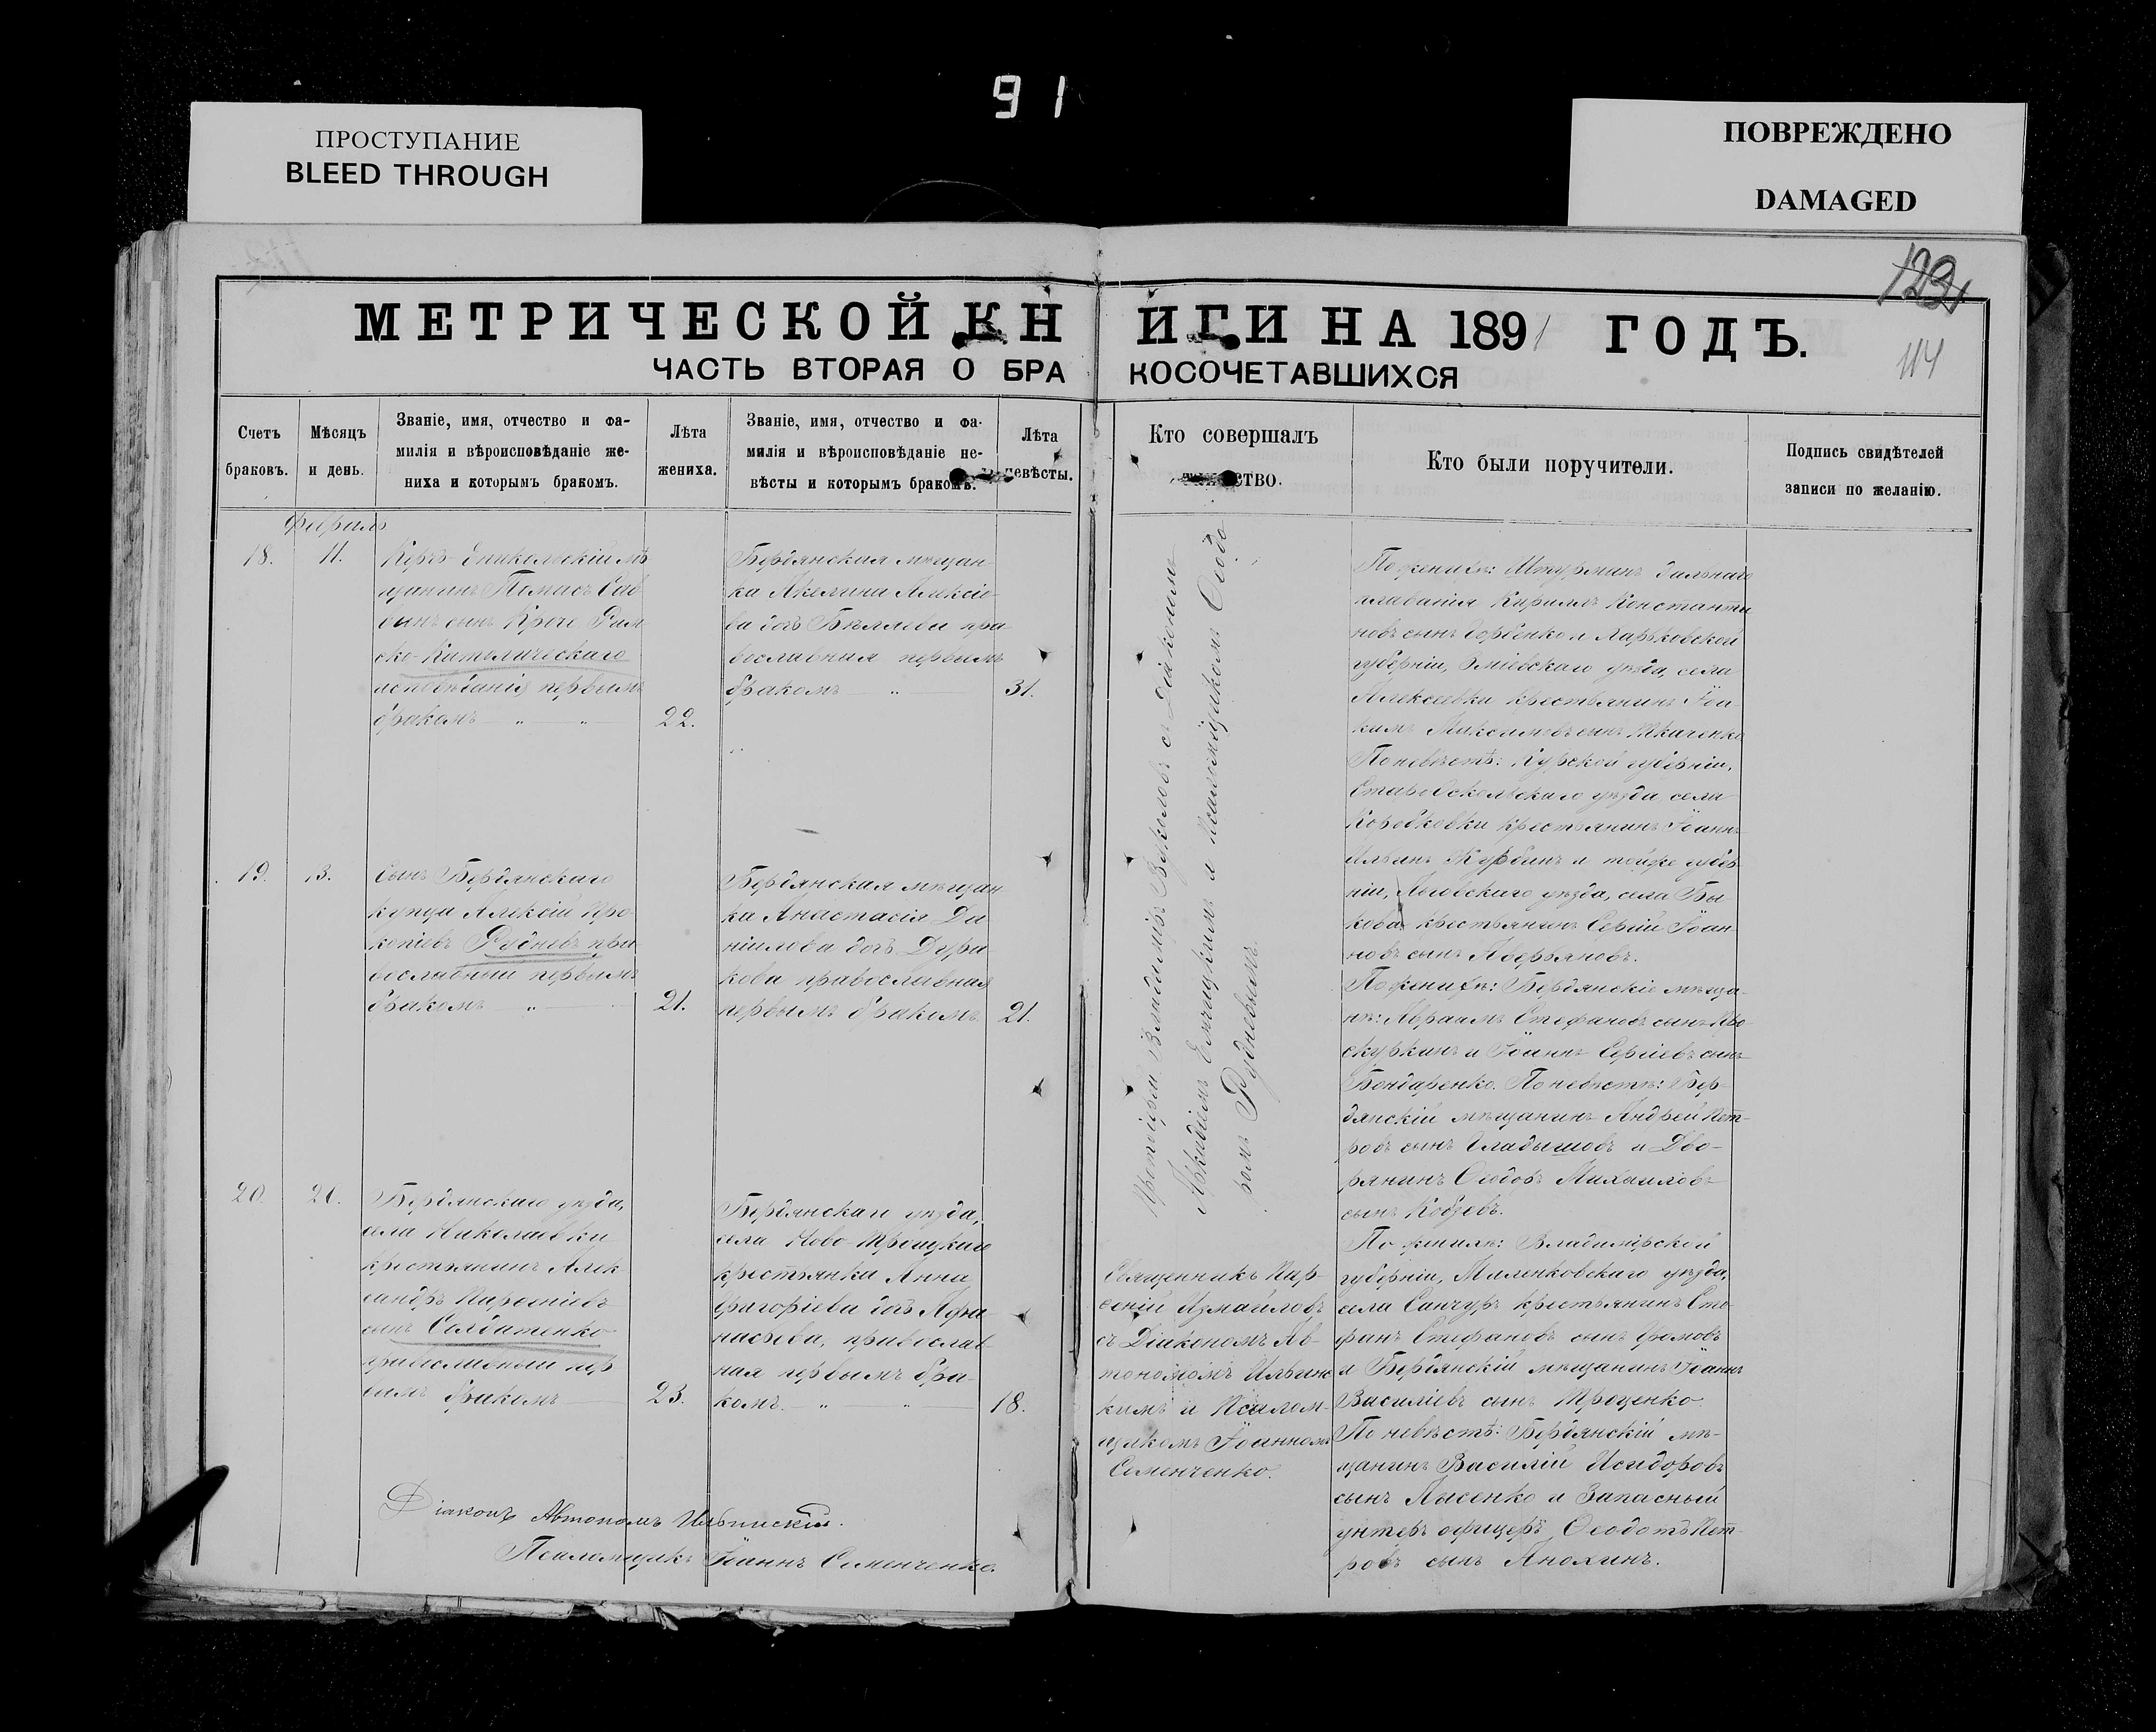 91
ПРОСТУПАНИЕ
BLEED THROUGH
ПОВРЕЖДЕНО
DAMAGED
123
114
МЕТРИЧЕСКОЙ КНИГИ НА 1891 ГОДЪ.
ЧАСТЬ ВТОРАЯ О БРАКОСОЧЕТАВШИХСЯ
Счетъ
браковъ.
Мѣсяцъ
и день.
Званіе, имя, отчество и фа-
милія и вѣроисповѣданіе же-
ниха и которымъ бракомъ.
Лѣта
жениха.
Званіе, имя, отчество и фа-
милія и вѣроисповѣданіе не-
вѣсты и которымъ бракомъ.
Лѣта
невѣсты.
Кто совершалъ
таинство.
Кто были поручители.
Подпись свидѣтелей
записи по желанію.
Февраль
18.
11.
Керчь-Еникольскій мѣ
щанинъ Томасъ
сынъ Рим
ско-Католическаго
исповѣданія первымъ
бракомъ
22.
Бердянская мѣщан
ка Акелина Алексіе
ва дочь Бѣляева пра
вославная первымъ
бракомъ
31.
Протоіерей Владиміръ Вуколовъ съ Діакономъ
Аркадіемъ и Псаломщикомъ Ѳеодо
ромъ Рудневымъ.
По женихѣ: Штурманъ дальняго
плаванія Кириллъ Константи
новъ сынъ Горбенко и Харьковской
губерніи, Зміевскаго уѣзда, села
Алексеевки крестьянинъ Іоа
кимъ Максимовъ сынъ Ткаченко
По невѣстѣ: Курской губерніи,
Старооскольскаго уѣзда села
Коробковки крестьянинъ Іоаннъ
Ильинъ Курбинъ и тойже губер
ніи, Льговскаго уѣзда, села Бы
кова крестьянинъ Сергій Іоан
новъ сынъ Аверьяновъ.
19.
13.
Сынъ Бердянскаго
купца Алексій Про
копіевъ Рудневъ пра
вославный первымъ
бракомъ
21.
Бердянская мѣщан
ка Анастасія Да
ніилова дочь Дура
кова православная
первымъ бракомъ
21.
По женихѣ: Бердянскіе мѣща-
не: Авраамъ Стефановъ сынъ Про
скуркинъ и Іоаннъ Сергіевъ сынъ
Бондаренко. По невѣстѣ: Бер-
дянскій мѣщанинъ Андрей Пет-
ровъ сынъ Гладышовъ и Дво-
рянинъ Ѳеодоръ Михаиловъ
сынъ Кобзевъ.
20
20.
Бердянскаго уѣзда,
села Николаевки
крестьянинъ Алек
сандръ Парѳеніевъ
сынъ Солдатенко
православный пер
вымъ бракомъ
23.
Бердянскаго уѣзда,
села Ново Троицкаго
крестьянка Анна
Григоріева дочь Афа
насьева, православ
ная первымъ бра-
комъ.
18.
Священникъ Пар-
ѳеній Измайловъ
съ Діакономъ Ав-
тономомъ Ильинс
кимъ и Псалом-
щикомъ Іоанномъ
Семенченко.
По женихѣ: Владимірской
губерніи, Меленковскаго уѣзда,
села Санчуръ крестьянинъ Сте-
фанъ Стефановъ сынъ Громовъ
и Бердянскій мѣщанинъ Іоаннъ
Василіевъ сынъ Троценко
По невѣстѣ: Бердянскій мѣ-
щанинъ Василій Исидоровъ
сынъ Лысенко и Запасный
унтеръ офицеръ Ѳеодотъ Пет-
ровъ сынъ Анохинъ.
Діаконъ Автономъ Ильинскій.
Псаломщикъ Іоаннъ Семенченко.